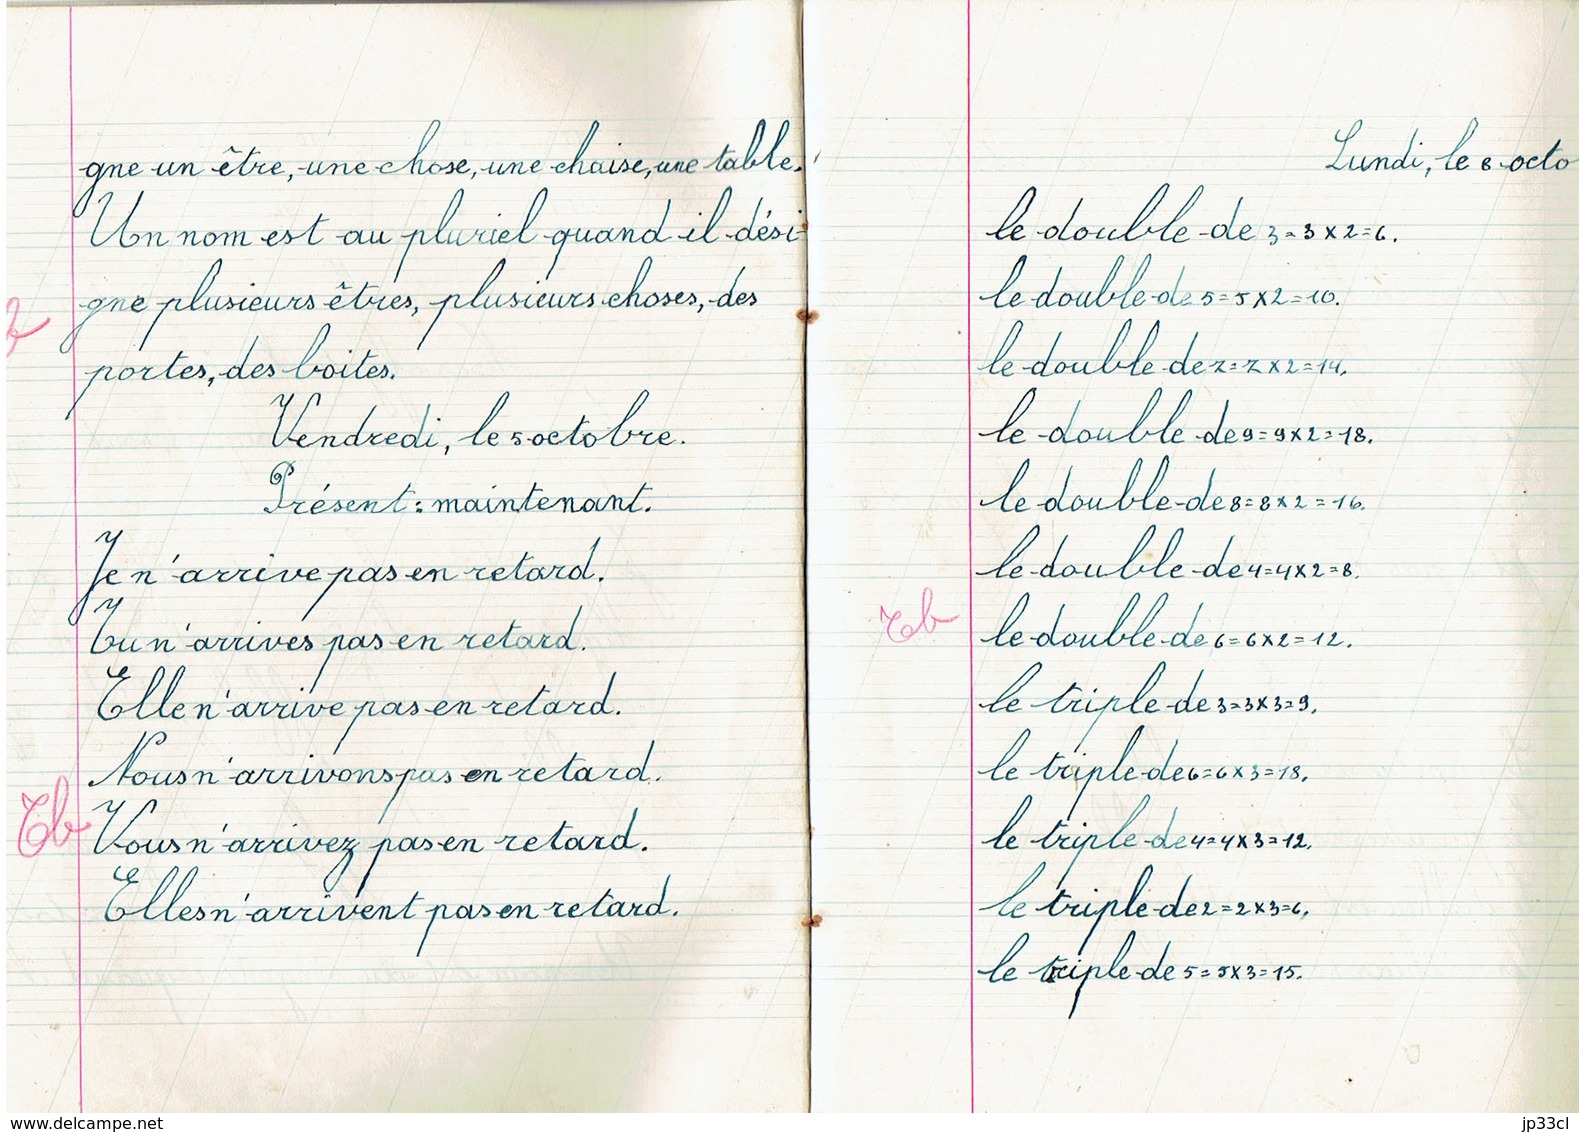 gne un être, une chose, une chaise, une table.
Un nom est au pluriel quand il dési-
gne plusieurs êtres, plusieurs choses, des
portes, des boites.
Vendredi, le 5 octobre.
Présent : maintenant.
Je n'arrive pas en retard.
Tu n'arrives pas en retard.
Elle n'arrive pas en retard.
Nous n'arrivons pas en retard.
Tb
Vous n'arrivez pas en retard.
Elles n'arrivent pas en retard.
Lundi, le 8 octo
le double de 3 = 3 x 2 = 6.
le double de 5 = 5 x 2 = 10.
le double de 7 = 7 x 2 = 14.
le double de 9 = 9 x 2 = 18.
le double de 8 = 8 x 2 = 16.
le double de 4 = 4 x 2 = 8.
Tb
le double de 6 = 6 x 2 = 12.
le triple de 3 = 3 x 3 = 9.
le triple de 6 = 6 x 3 = 18.
le triple de 4 = 4 x 3 = 12.
le triple de 2 = 2 x 3 = 6.
le triple de 5 = 5 x 3 = 15.
www.delcampe.net
jp33cl